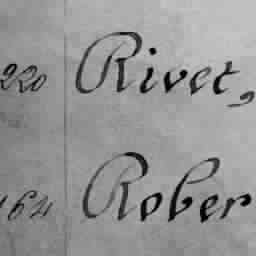 220 Rivet,
164 Rober